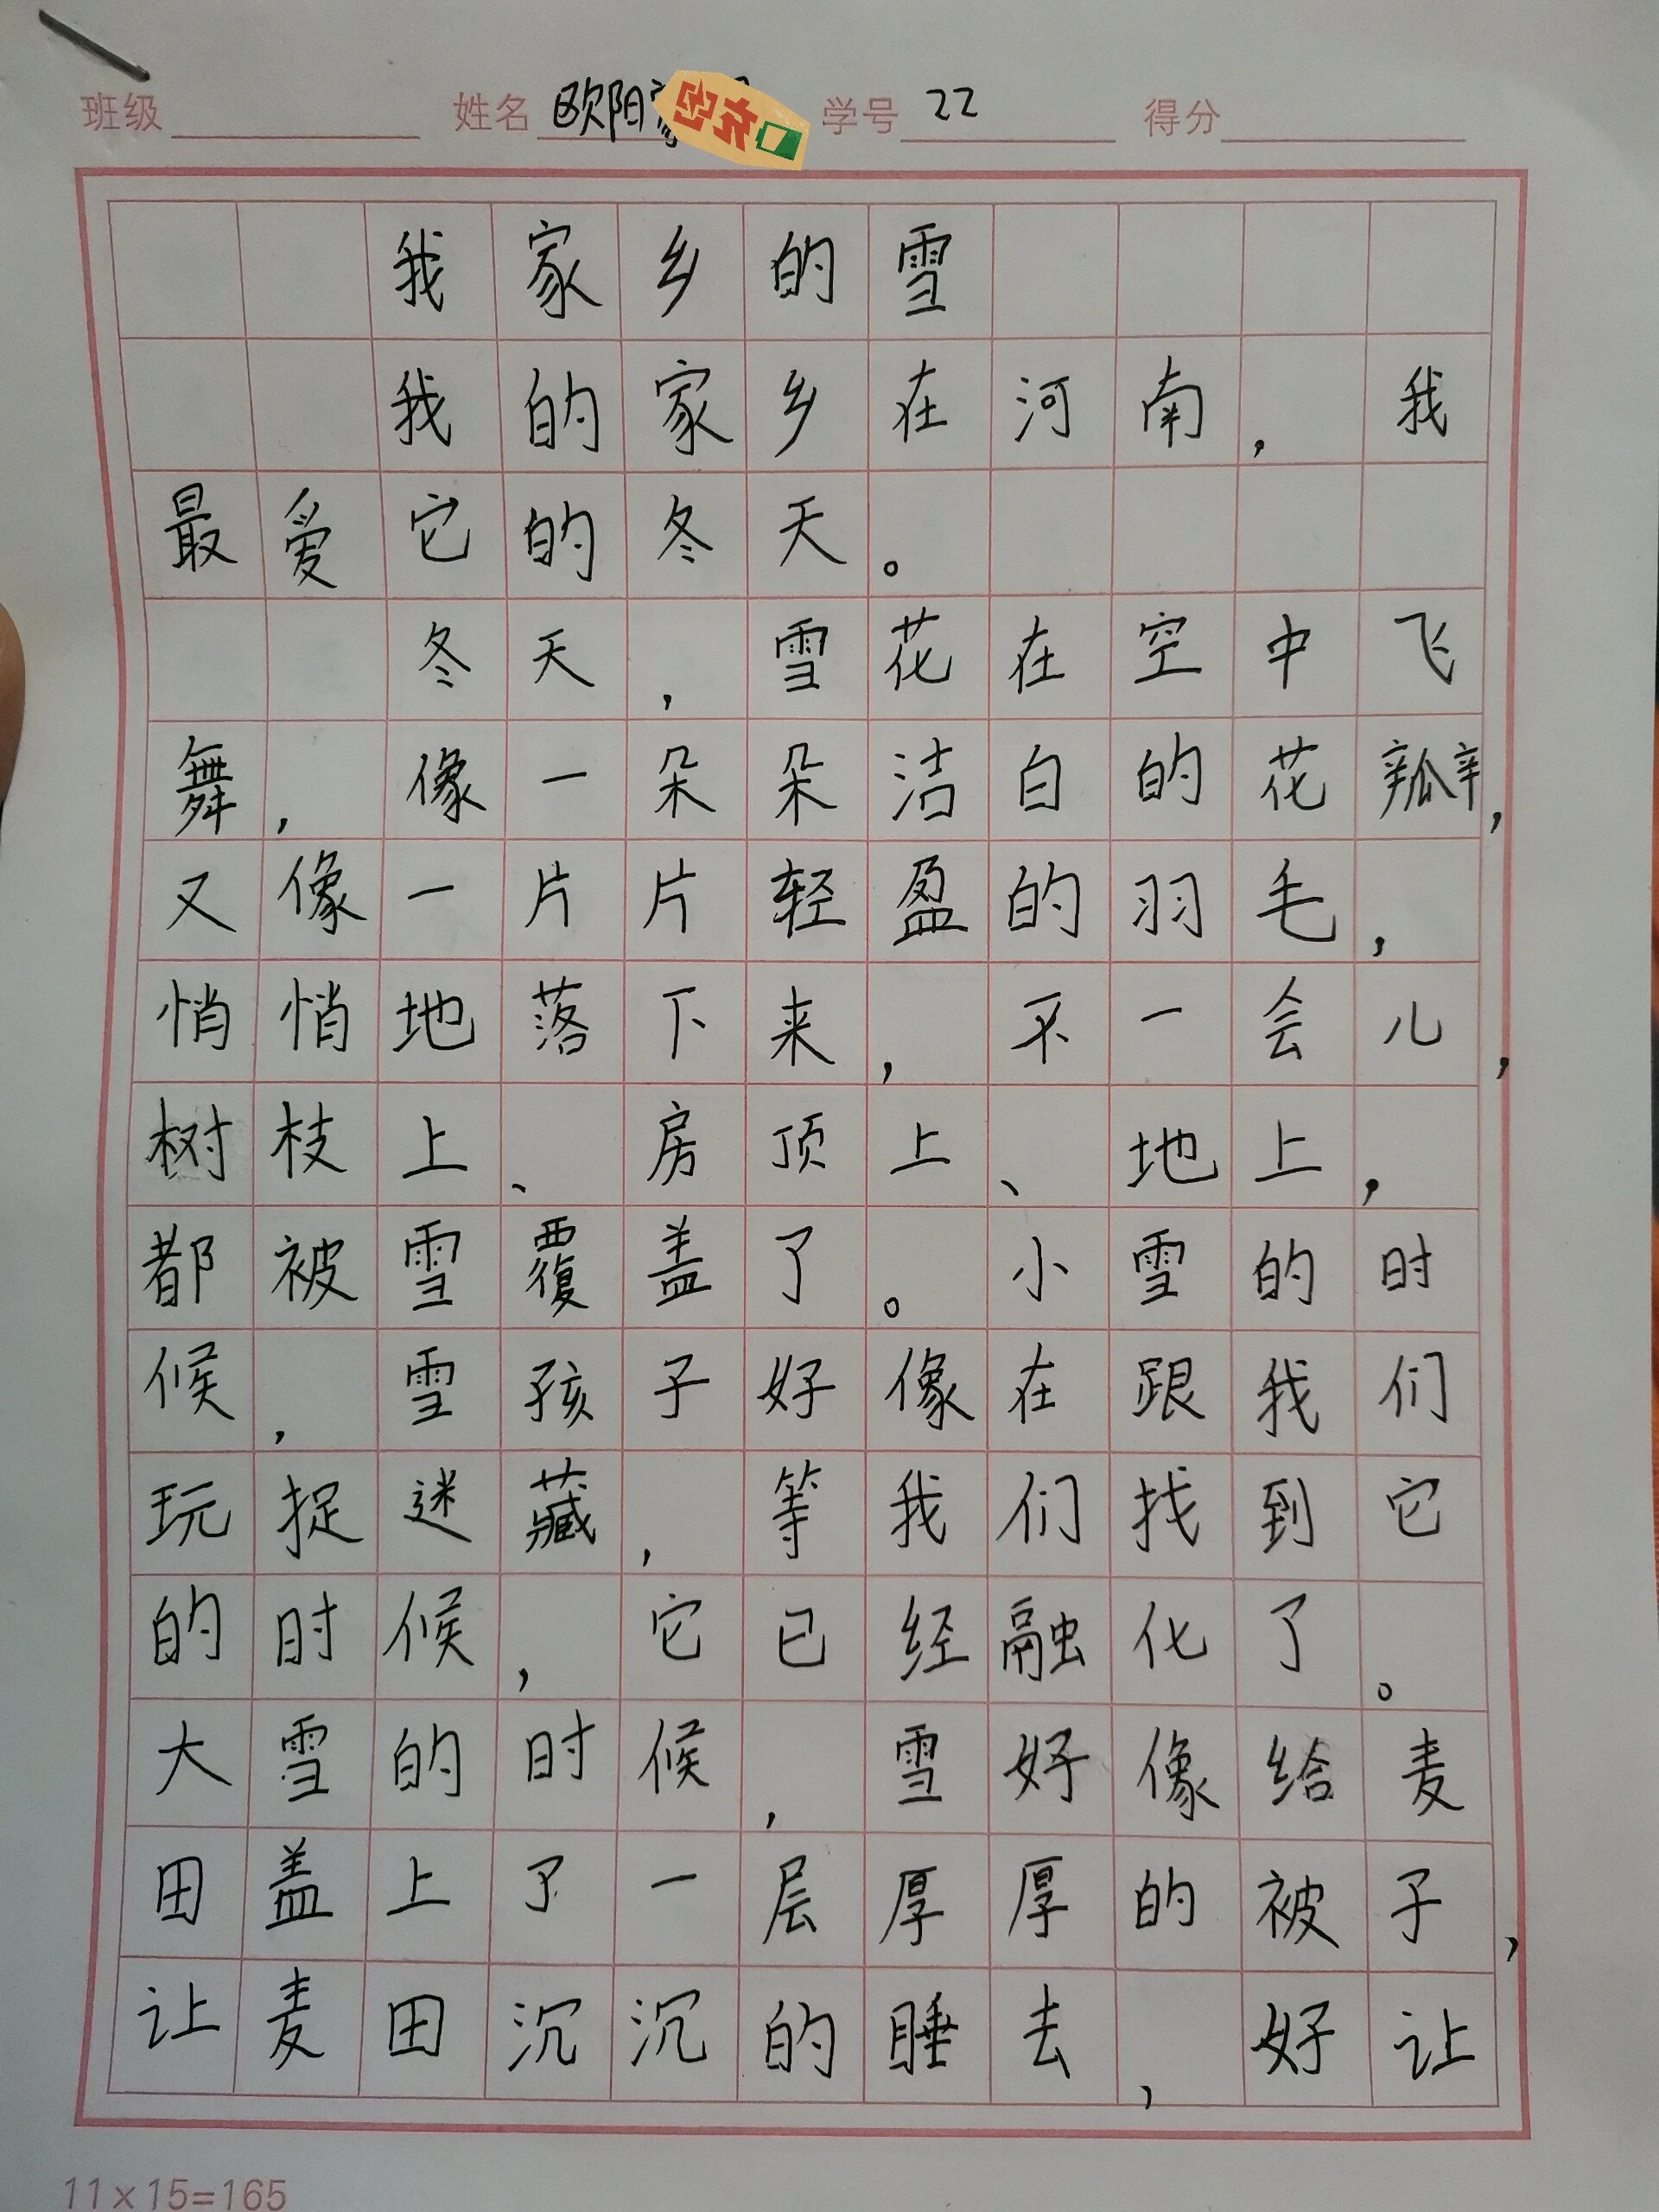 班级 姓名 欧阳 学号 22 得分
我家乡的雪
我的家乡在河南，我
最爱它的冬天。
冬天，雪花在空中飞
舞，像一朵朵洁白的花瓣，
又像一片片轻盈的羽毛，
悄悄地落下来，不一会儿，
树枝上、房顶上、地上，
都被雪覆盖了。小雪的时
候，雪孩子好像在跟我们
玩捉迷藏，等我们找到它
的时候，它已经融化了。
大雪的时候，雪好像给麦
田盖上了一层厚厚的被子，
让麦田沉沉的睡去，好让
11×15=165